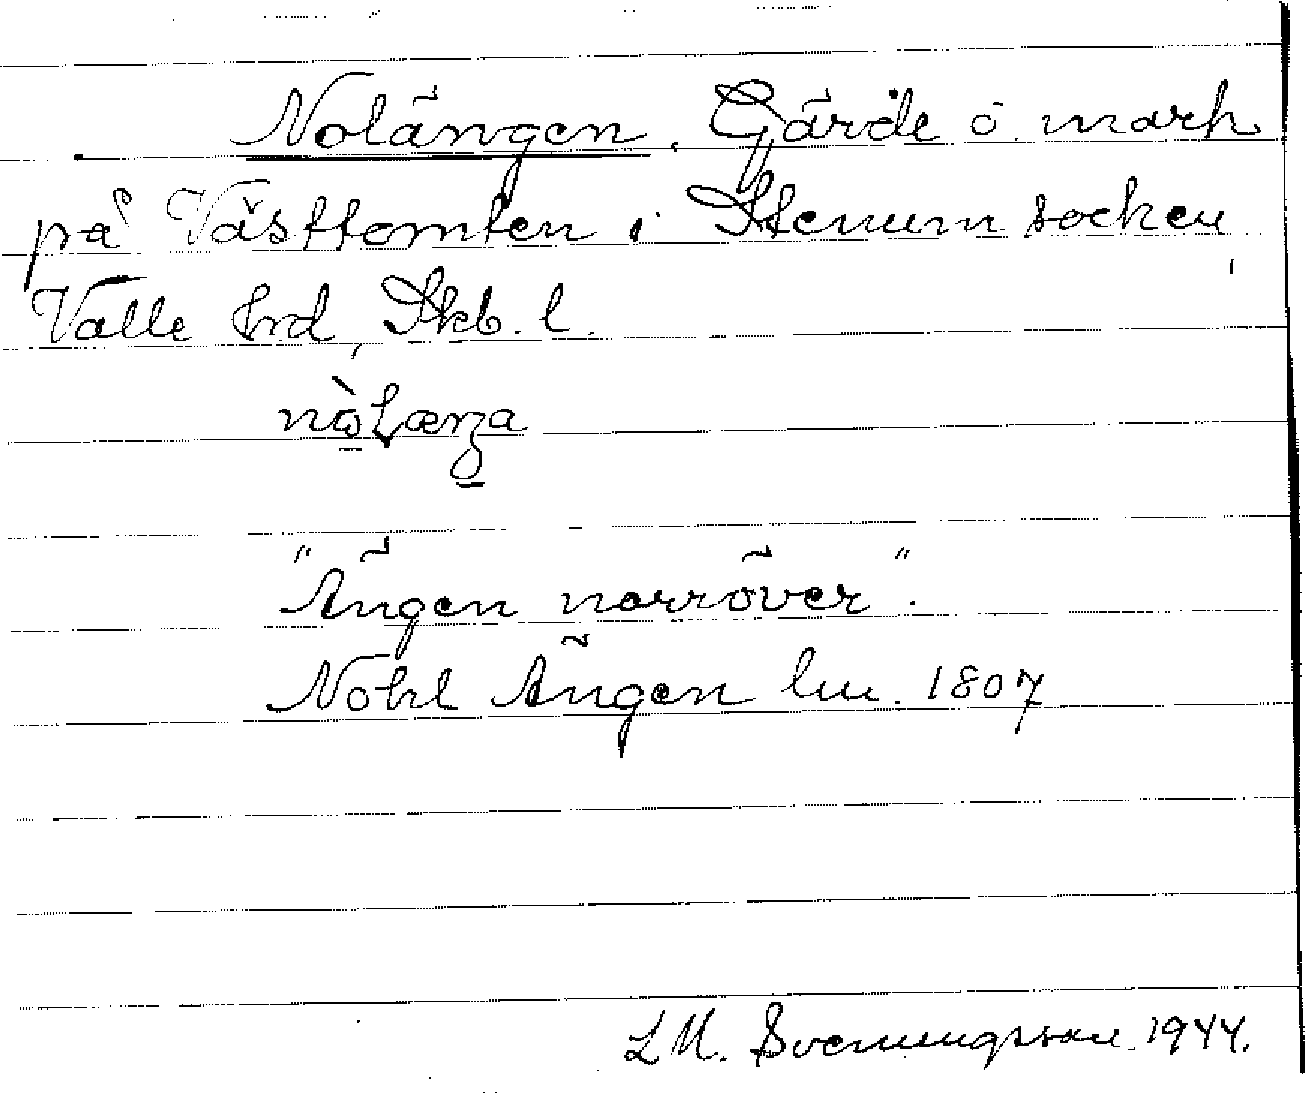 Nolängen. Gärde o. mark
på Västtomten i Stenum socken,
Valle hrd, Skb. l.
"Ängen norröver".
Nohl Ängen lm. 1807
L M. Svenungsson 1944.